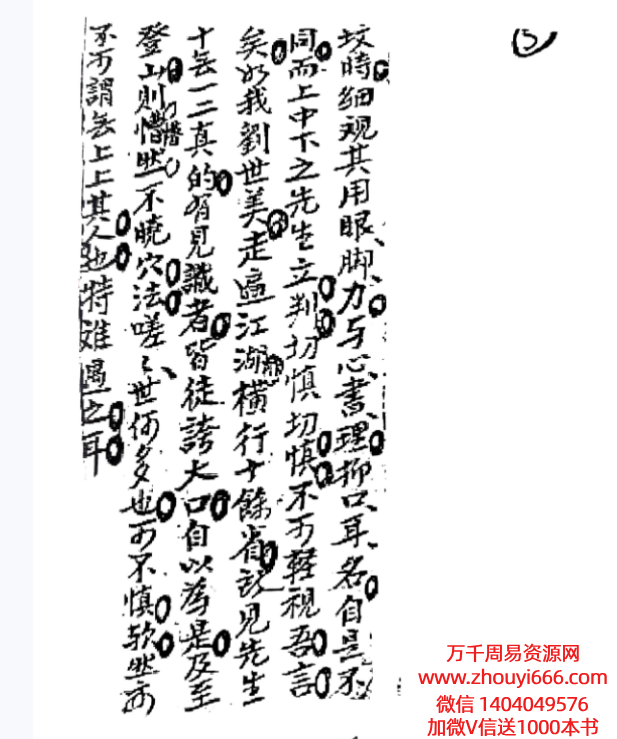 ⑤
坟時细观其用眼、脚、力与心書、理抑口、耳、名自是不
同而上中下之先生立判切慎切慎不可軽視吾言
矣如我劉世美走遍江湖横行十餘省 見先生
十无一二真的有見識者皆徒誇大口自以為是及至
登山則懵然不曉穴法嗟〻世何多也可不慎欤然亦
不可謂无上上其人也特难遇之耳
万千周易资源网
www.zhouyi666.com
微信 1404049576
加微V信送1000本书